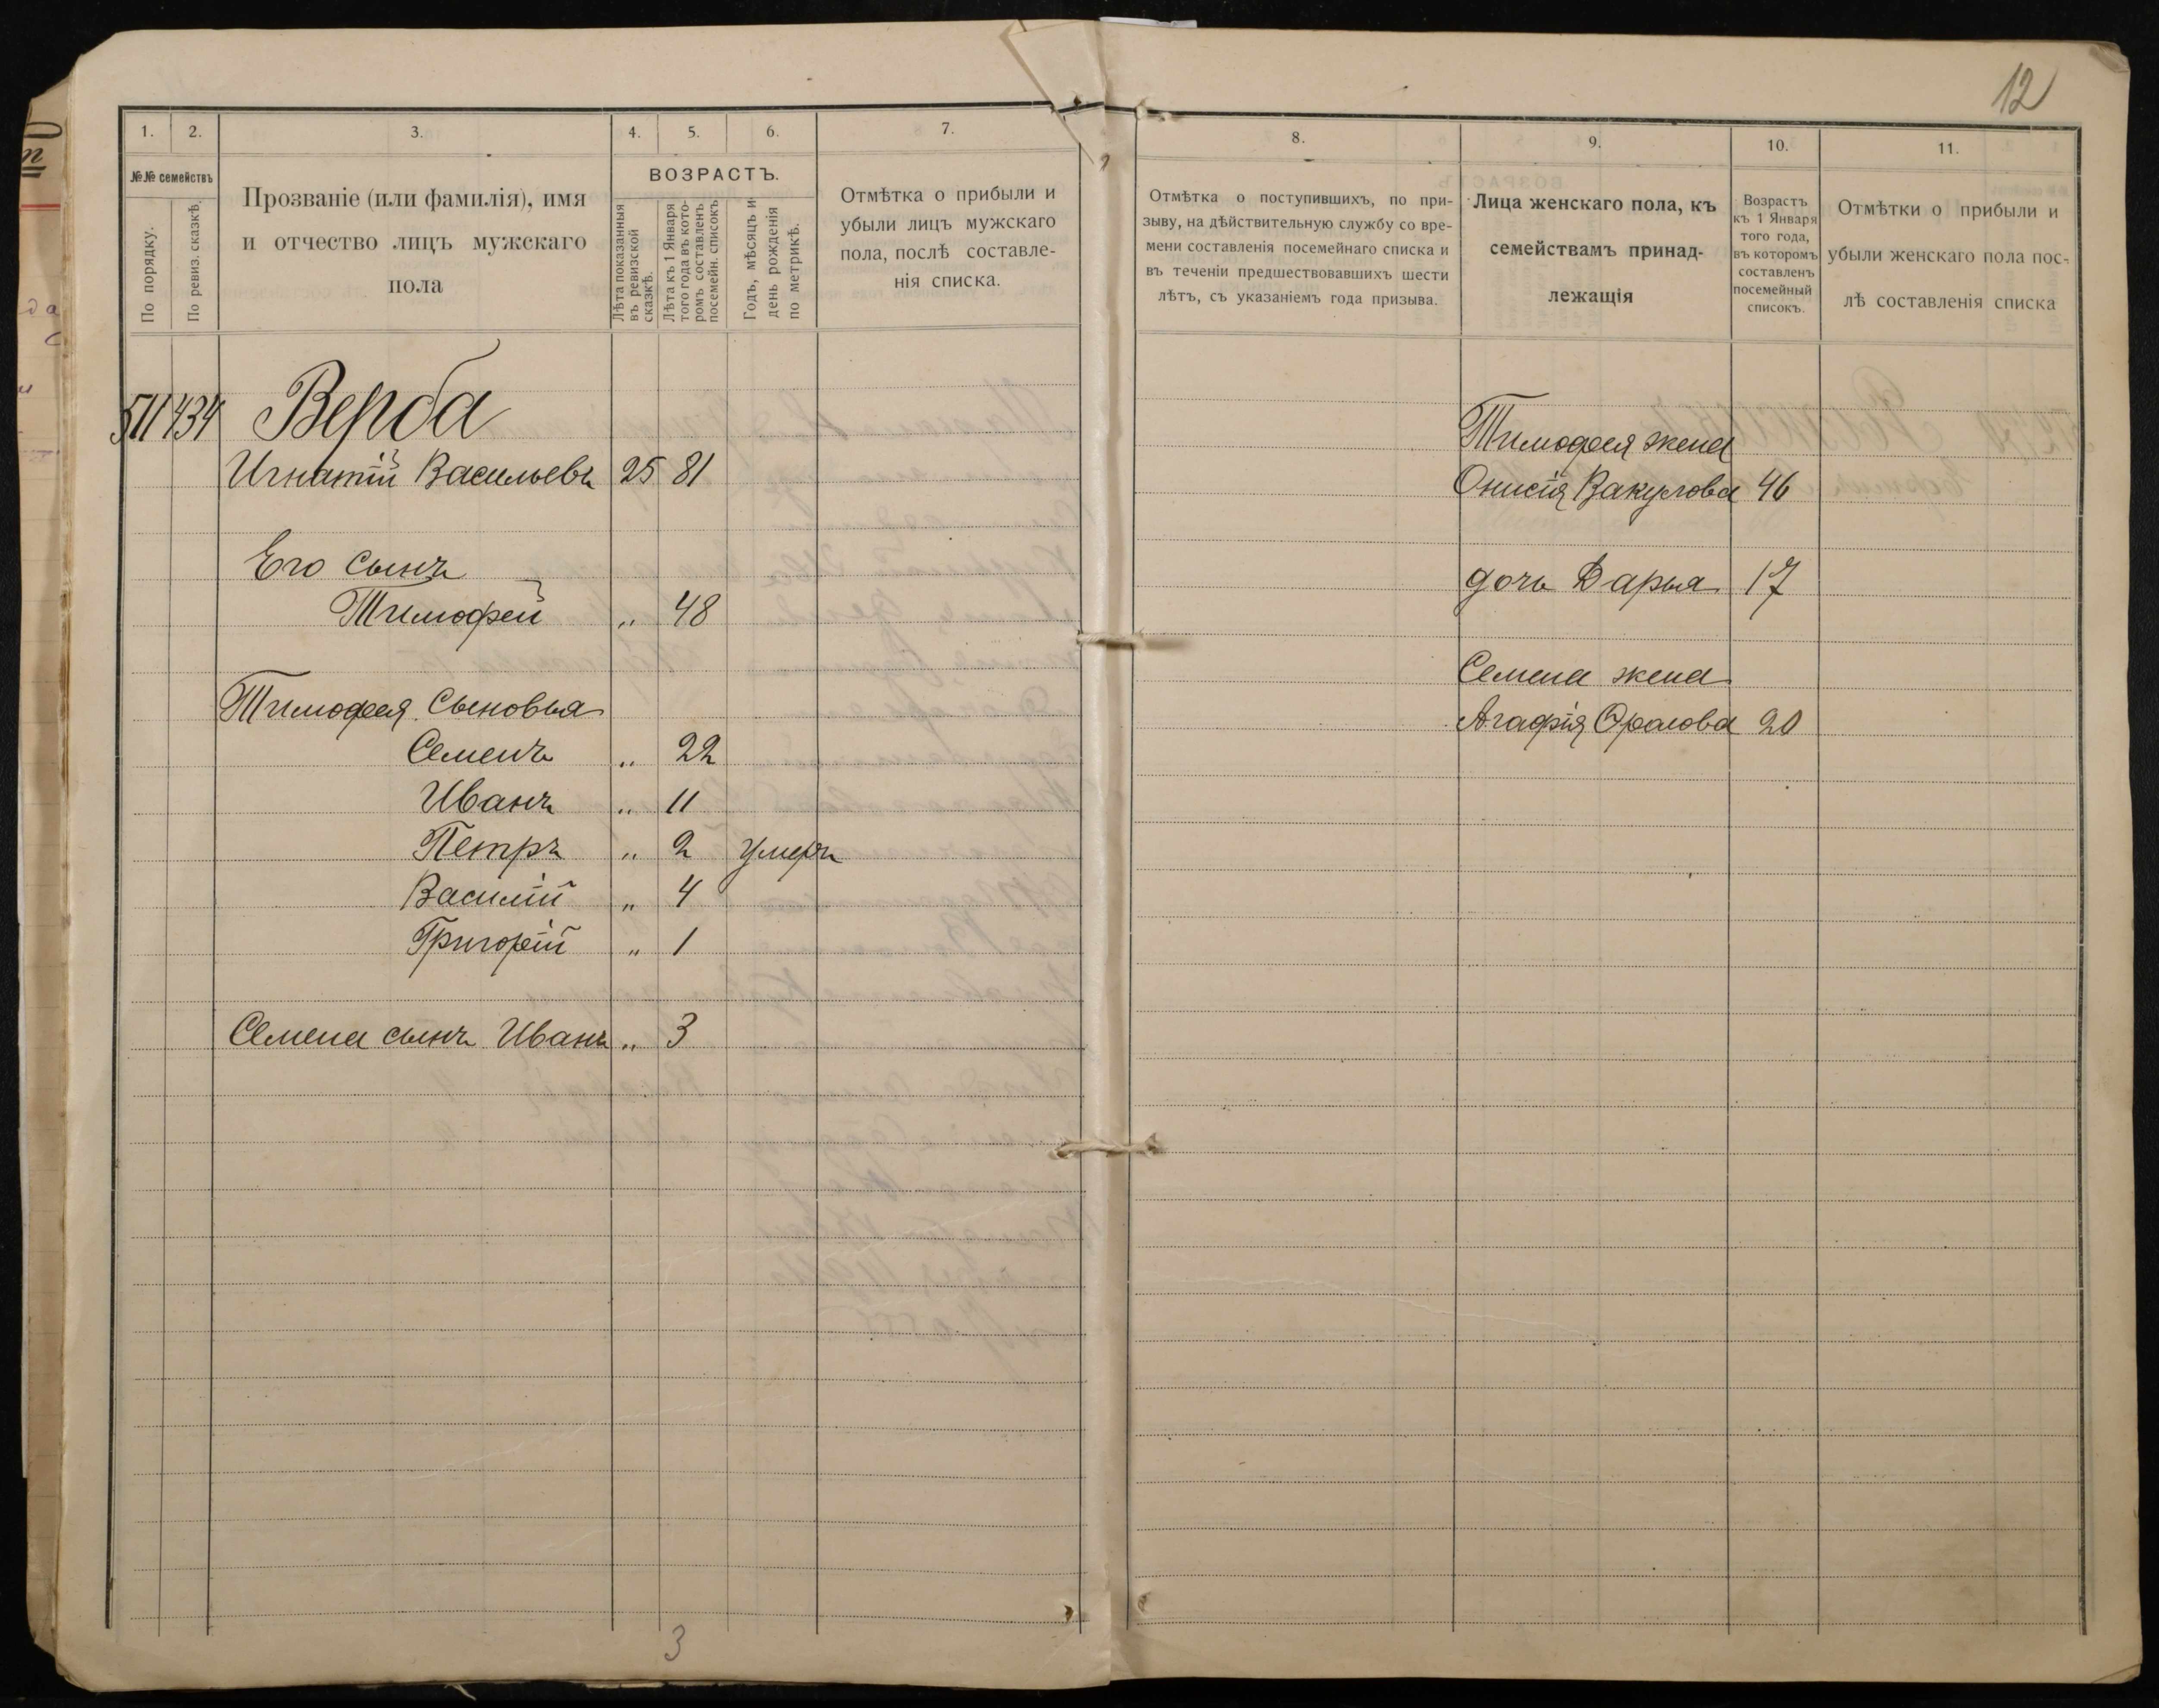 12
1. 2. 3. 4. 5. 6. 7.
№№ семействъ
По порядку.
По ревиз. сказкѣ.
Прозваніе (или фамилія), имя
и отчество лицъ мужскаго
пола
ВОЗРАСТЪ.
Лѣта показанныя
въ ревизской
сказкѣ.
Лѣта къ 1 Января
того года въ кото-
ромъ составленъ
посемейн. списокъ
Годъ, мѣсяцъ и
день рожденія
по метрикѣ.
Отмѣтка о прибыли и
убыли лицъ мужскаго
пола, послѣ составле-
нія списка.
511 434 Верба
Игнатій Васильевъ 25 81
Его сынъ
Тимофей „ 48
Тимофея Сыновья
Семенъ „ 22
Иванъ „ 11
Петръ „ 2 умеръ
Василій „ 4
Григорій „ 1
Семена сынъ Иванъ „ 3
3
8. 9. 10. 11.
Отмѣтка о поступившихъ, по при-
зыву, на дѣйствительную службу со вре-
мени составленія посемейнаго списка и
въ теченіи предшествовавшихъ шести
лѣтъ, съ указаніемъ года призыва.
Лица женскаго пола, къ
семействамъ принад-
лежащія
Возрастъ
къ 1 Января
того года,
въ которомъ
составленъ
посемейный
списокъ.
Отмѣтки о прибыли и
убыли женскаго пола пос-
лѣ составленія списка
Тимофея жена
Онисія Вакулова 46
дочь Дарья 17
Семена жена
Агафія 20